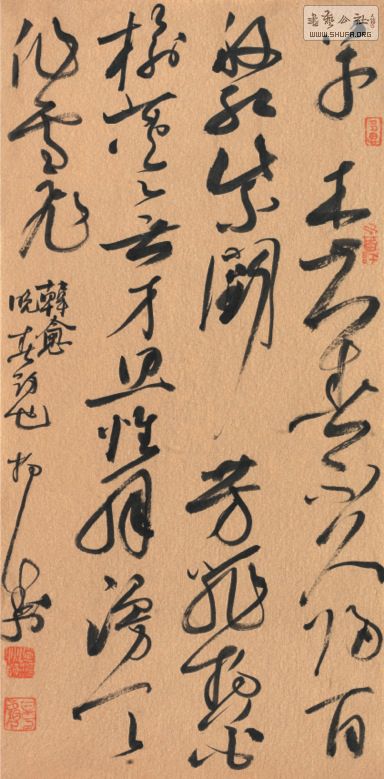 草木知春不久歸百
般紅紫鬭芳菲楊花
榆莢無才思惟解漫天
作雪飛
韓愈
晚春詩也
WWW.SHUFA.ORG